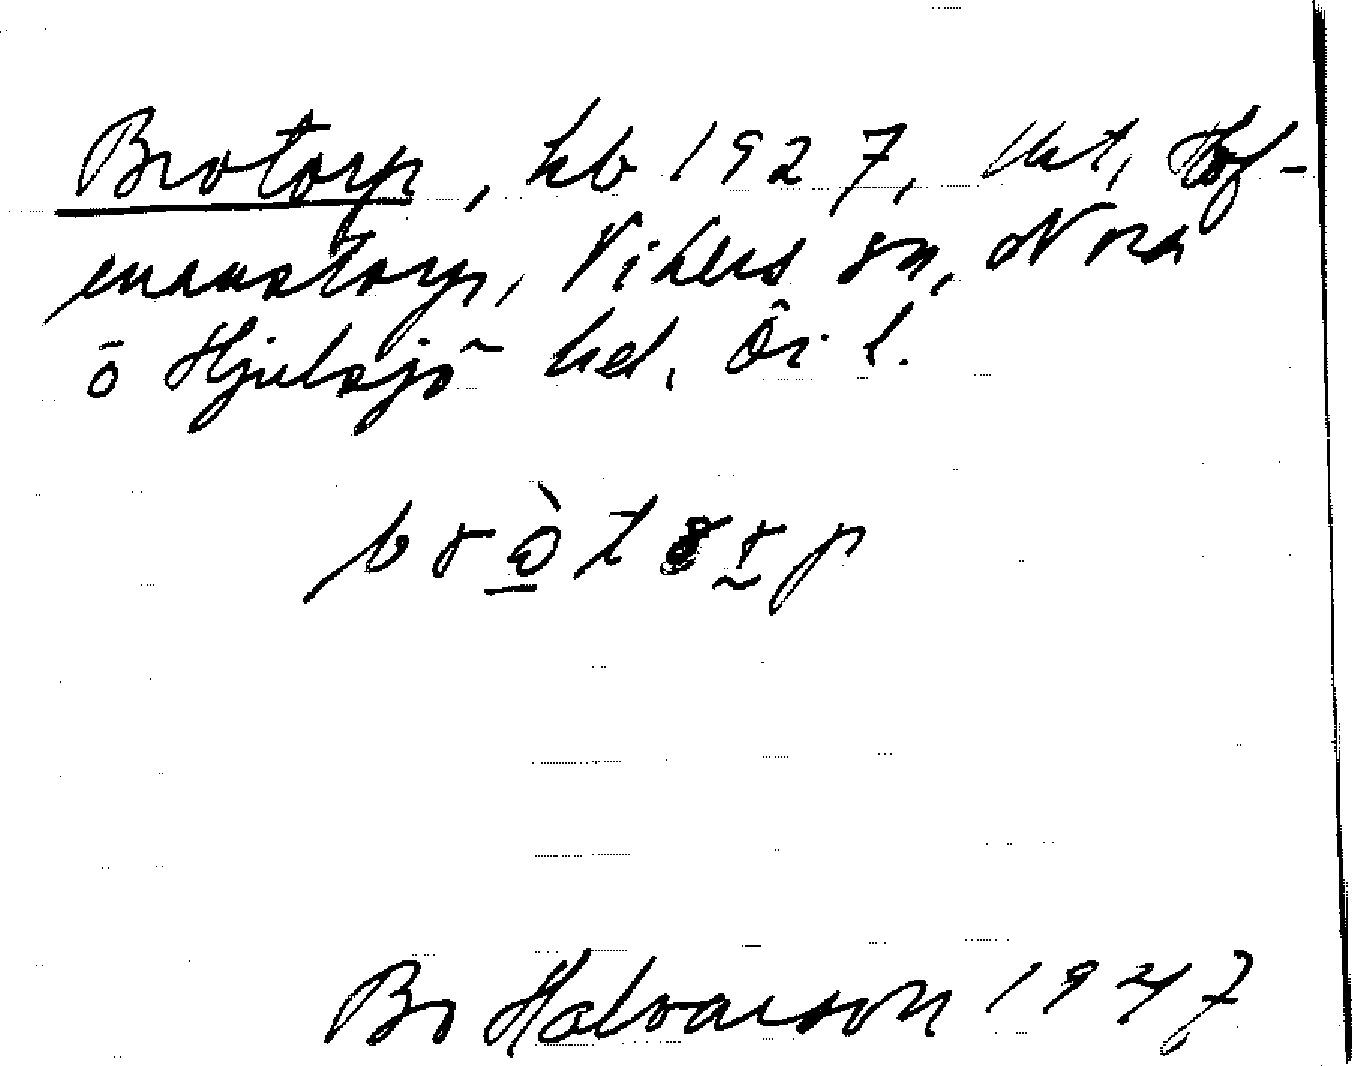 Brotorp, hb 1927, Ut, Hof-
manstorp, Vikers sn, Nora
o Hjulsjö hd. Ör l.
Bo Halvarson 1947